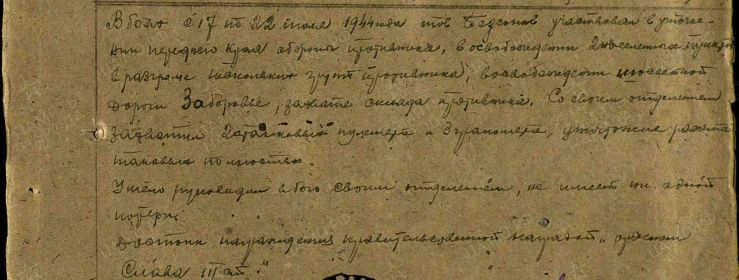 В боях с 17 по 22 июля 1944 года тов. Бедсонов участвовал в уточне-
нии переднего края обороны противника, в освобождении 2 населенных пунктов
в разгроме нескольких групп противника, в освобождении шоссейной
дороги Заборовье, захвате склада противника. Со своим отделением
захватил 2 станковых пулемета и 3 гранамета, уничтожив
таковых полностью.
Умело руководил в бою своим отделением, не имеет ни одной
потери.
Достоин награждения правительственной наградой „орденом
Слава III ст."